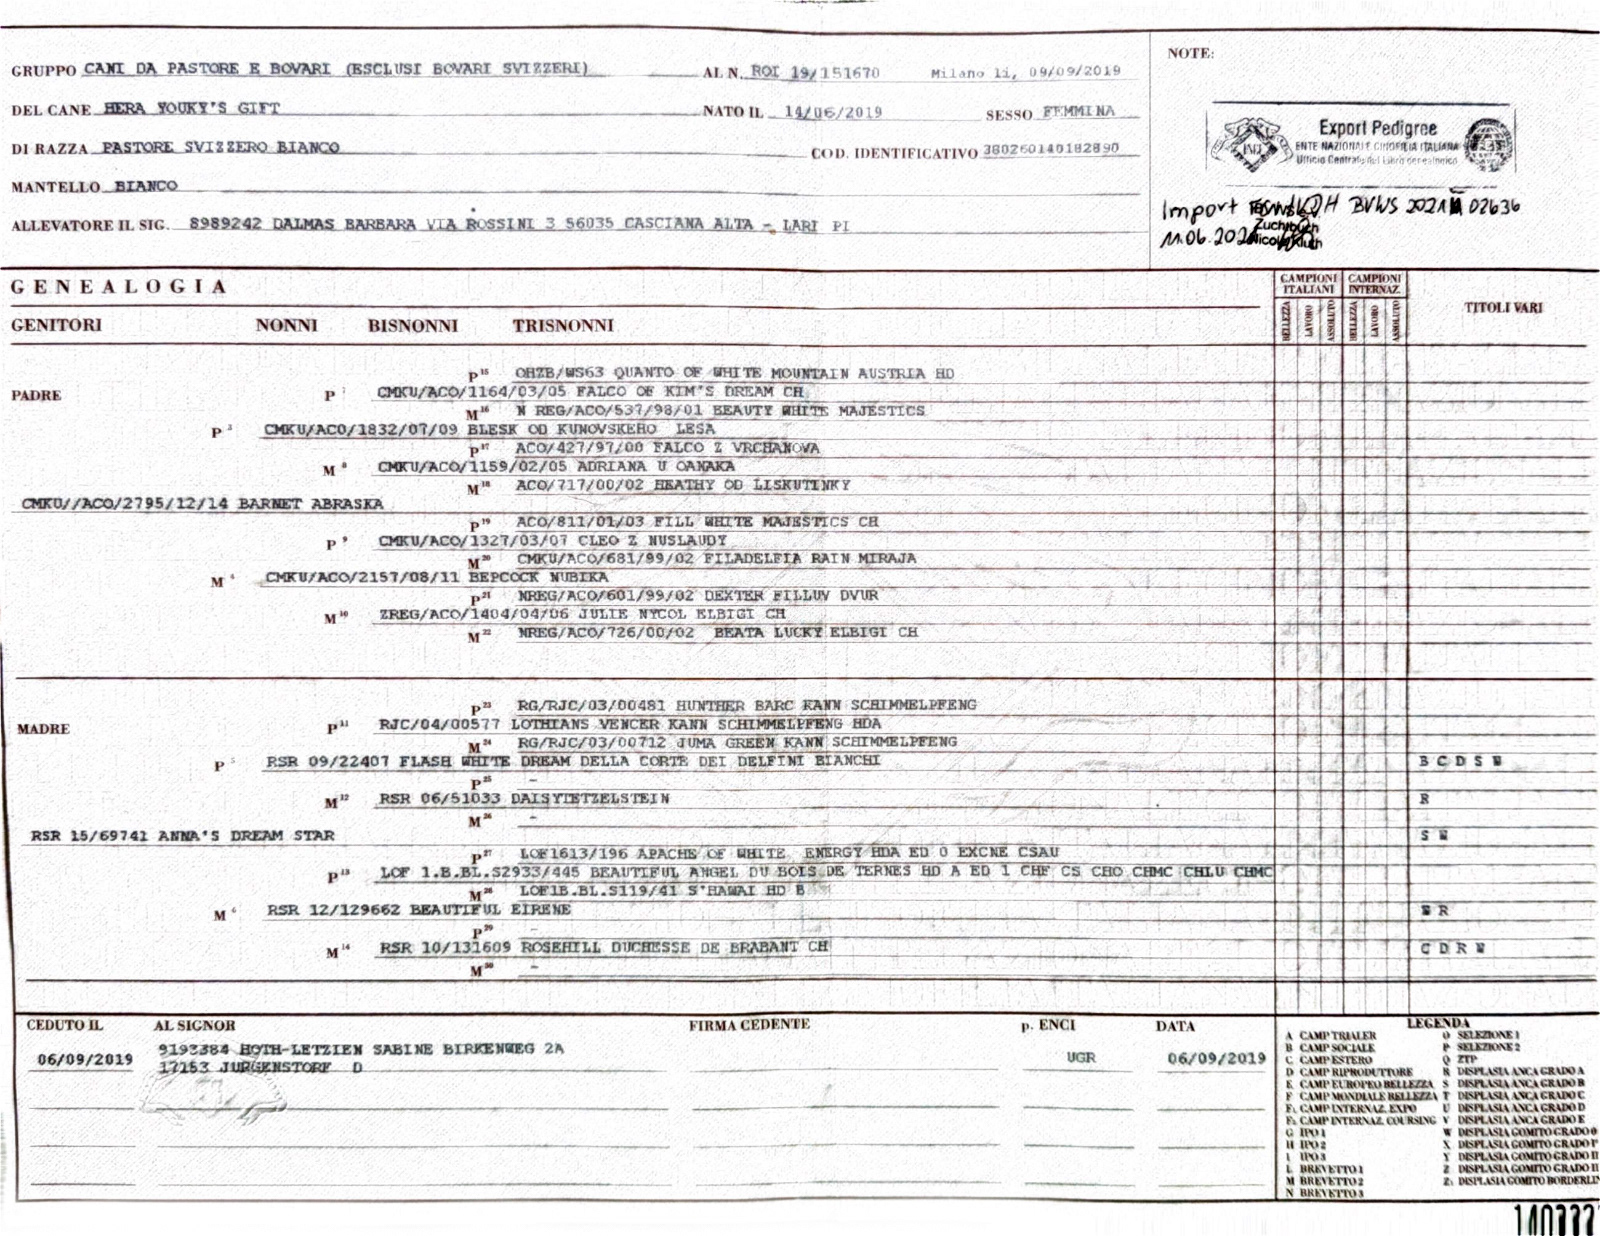 GRUPPO CANI DA PASTORE E BOVARI (ESCLUSI BOVARI SVIZZERI) AL N. ROI 19/151670 Milano li, 09/09/2019
NOTE:
DEL CANE HERA YOUKY'S GIFT NATO IL 14/06/2019 SESSO FEMMINA
DI RAZZA PASTORE SVIZZERO BIANCO COD. IDENTIFICATIVO 380260140182890
MANTELLO BIANCO
ALLEVATORE IL SIG. 8989242 DALMAS BARBARA VIA ROSSINI 3 56035 CASCIANA ALTA - LARI PI
Export Pedigree
ENTE NAZIONALE CINOFILIA ITALIANA
Ufficio Centrale del Libro genealogico
Import BVWS 2021 02636
Zuchtbuch
11.06.202
GENEALOGIA
CAMPIONI ITALIANI CAMPIONI INTERNAZ. TITOLI VARI
BELLEZZA LAVORO ASSOLUTO BELLEZZA LAVORO ASSOLUTO
GENITORI NONNI BISNONNI TRISNONNI
P 15 OHZB/WS63 QUANTO OF WHITE MOUNTAIN AUSTRIA HD
PADRE P 7 CMKU/ACO/1164/03/05 FALCO OF KIM'S DREAM CH
M 16 N REG/ACO/537/98/01 BEAUTY WHITE MAJESTICS
P 3 CMKU/ACO/1832/07/09 BLESK OD KUNOVSKEHO LESA
P 17 ACO/427/97/00 FALCO Z VRCHANOVA
M 8 CMKU/ACO/1159/02/05 ADRIANA U OANAKA
M 18 ACO/717/00/02 HEATHY OD LISKUTINKY
CMKU//ACO/2795/12/14 BARNET ABRASKA
P 19 ACO/811/01/03 FILL WHITE MAJESTICS CH
P 9 CMKU/ACO/1327/03/07 CLEO Z NUSLAUDY
M 20 CMKU/ACO/681/99/02 FILADELFIA RAIN MIRAJA
M 4 CMKU/ACO/2157/08/11 BEPCOCK NUBIKA
P 21 NREG/ACO/601/99/02 DEXTER FILLUV DVUR
M 10 ZREG/ACO/1404/04/06 JULIE NYCOL ELBIGI CH
M 22 NREG/ACO/726/00/02 BEATA LUCKY ELBIGI CH
P 23 RG/RJC/03/00481 HUNTHER BARC KANN SCHIMMELPFENG
MADRE P 11 RJC/04/00577 LOTHIANS VENCER KANN SCHIMMELPFENG HDA
M 24 RG/RJC/03/00712 JUMA GREEN KANN SCHIMMELPFENG
P 5 RSR 09/22407 FLASH WHITE DREAM DELLA CORTE DEI DELFINI BIANCHI B C D S W
P 25 -
M 12 RSR 06/51033 DAISYTETZELSTEIN R
M 26 -
RSR 15/69741 ANNA'S DREAM STAR S W
P 27 LOF1613/196 APACHE OF WHITE ENERGY HDA ED 0 EXCNE CSAU
P 13 LOF 1.B.BL.S2933/445 BEAUTIFUL ANGEL DU BOIS DE TERNES HD A ED 1 CHF CS CHO CHMC CHLU CHMC
M 28 LOF1B.BL.S119/41 S'HAWAI HD B
M 6 RSR 12/129662 BEAUTIFUL EIRENE W R
P 29 -
M 14 RSR 10/131609 ROSEHILL DUCHESSE DE BRABANT CH C D R W
M 30 -
CEDUTO IL AL SIGNOR FIRMA CEDENTE p. ENCI DATA
06/09/2019 9193384 HOTH-LETZIEN SABINE BIRKENWEG 2A UGR 06/09/2019
17153 JURGENSTORF D
LEGENDA
A CAMP TRIALER O SELEZIONE 1
B CAMP SOCIALE P SELEZIONE 2
C CAMP ESTERO Q ZTP
D CAMP RIPRODUTTORE R DISPLASIA ANCA GRADO A
E CAMP EUROPEO BELLEZZA S DISPLASIA ANCA GRADO B
F CAMP MONDIALE BELLEZZA T DISPLASIA ANCA GRADO C
F1 CAMP INTERNAZ. EXPO U DISPLASIA ANCA GRADO D
F2 CAMP INTERNAZ. COURSING V DISPLASIA ANCA GRADO E
G IPO 1 W DISPLASIA GOMITO GRADO 0
H IPO 2 X DISPLASIA GOMITO GRADO I
I IPO 3 Y DISPLASIA GOMITO GRADO II
L BREVETTO 1 Z DISPLASIA GOMITO GRADO II
M BREVETTO 2 Z1 DISPLASIA GOMITO BORDERLIN
N BREVETTO 3